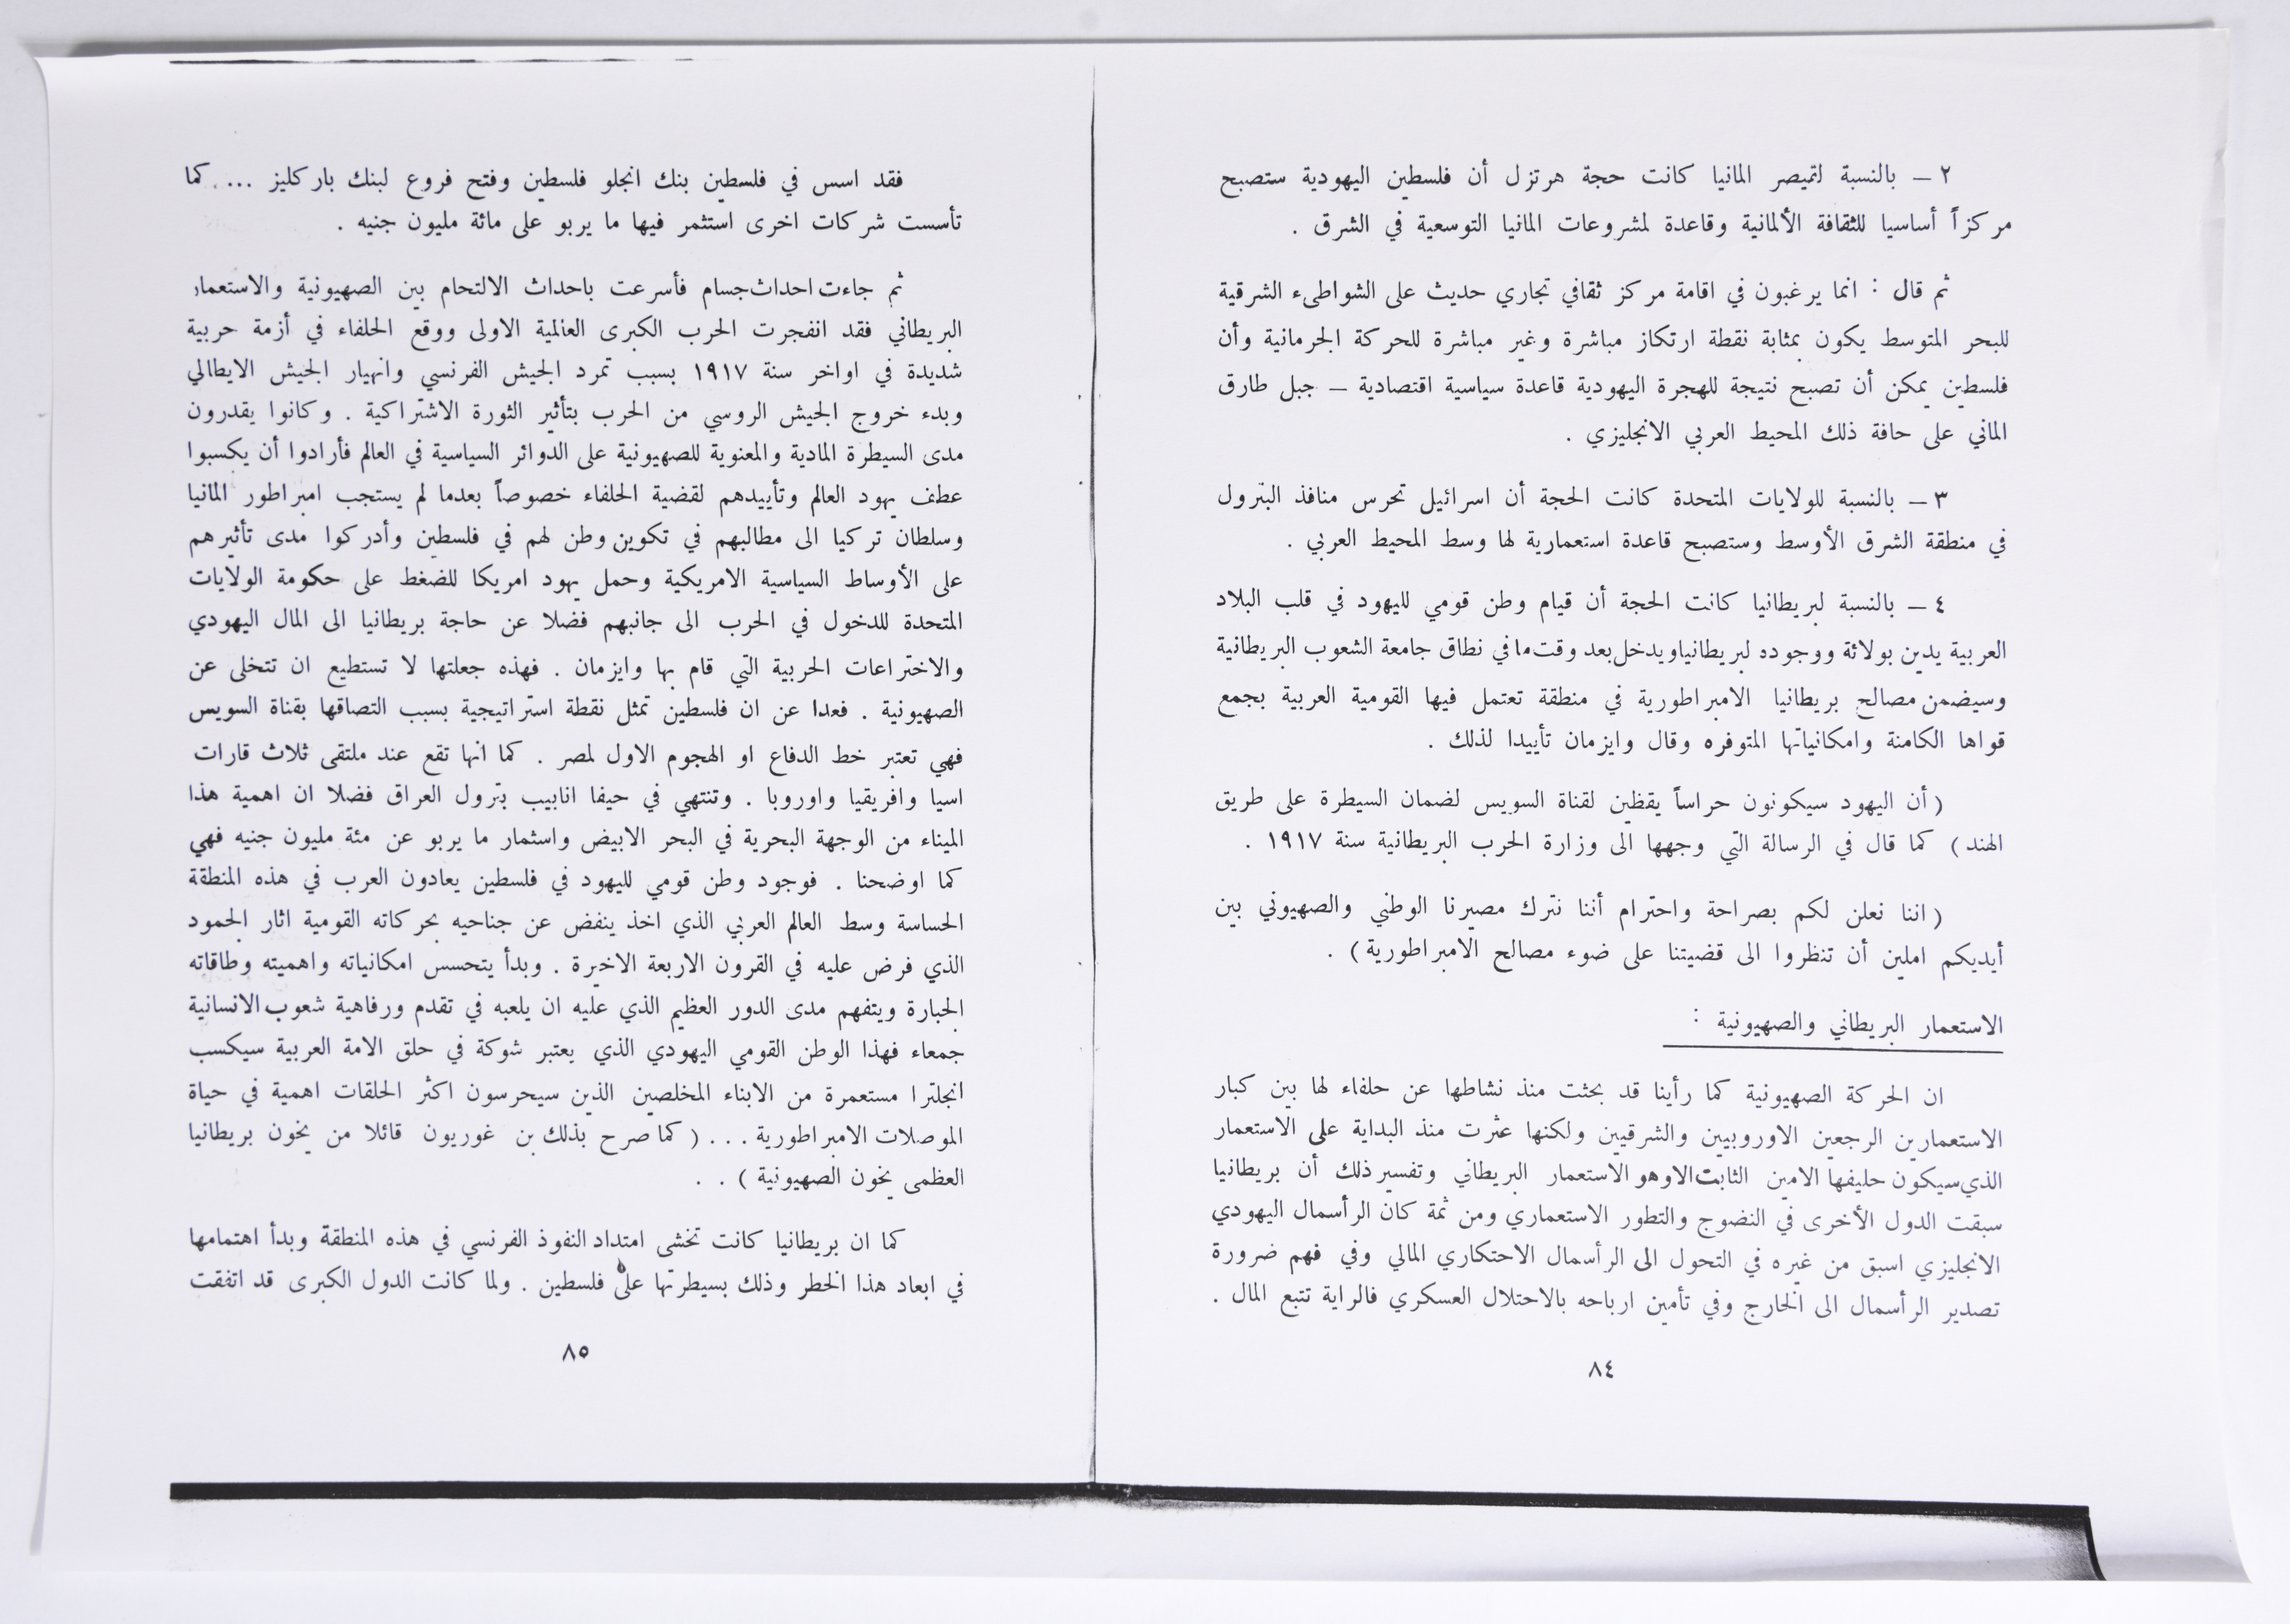 ٢ — بالنسبة لقيصر المانيا كانت حجة هرتزل أن فلسطين اليهودية ستصبح
مركزاً أساسيا للثقافة الألمانية وقاعدة لمشروعات المانيا التوسعية في الشرق .
ثم قال : انما يرغبون في اقامة مركز ثقافي تجاري حديث على الشواطىء الشرقية
للبحر المتوسط يكون بمثابة نقطة ارتكاز مباشرة وغير مباشرة للحركة الجرمانية وأن
فلسطين يمكن أن تصبح نتيجة للهجرة اليهودية قاعدة سياسية اقتصادية — جبل طارق
الماني على حافة ذلك المحيط العربي الانجليزي .
٣ — بالنسبة للولايات المتحدة كانت الحجة أن اسرائيل تحرس منافذ البترول
في منطقة الشرق الأوسط وستصبح قاعدة استعمارية لها وسط المحيط العربي .
٤ — بالنسبة لبريطانيا كانت الحجة أن قيام وطن قومي لليهود في قلب البلاد
العربية يدين بولائة ووجوده لبريطانيا ويدخل بعد وقت ما في نطاق جامعة الشعوب البريطانية
وسيضمن مصالح بريطانيا الامبراطورية في منطقة تعتمل فيها القومية العربية بجمع
قواها الكامنة وامكانياتها المتوفره وقال وايزمان تأييدا لذلك .
( أن اليهود سيكونون حراساً يقظين لقناة السويس لضمان السيطرة على طريق
الهند ) كما قال في الرسالة التي وجهها الى وزارة الحرب البريطانية سنة ١٩١٧ .
( اننا نعلن لكم بصراحة واحترام أننا نترك مصيرنا الوطني والصهيوني بين
أيديكم املين أن تنظروا الى قضيتنا على ضوء مصالح الامبراطورية ) .
الاستعمار البريطاني والصهيونية :
ان الحركة الصهيونية كما رأينا قد بحثت منذ نشاطها عن حلفاء لها بين كبار
الاستعمارين الرجعين الاوروبيين والشرقيين ولكنها عثرت منذ البداية على الاستعمار
الذي سيكون حليفها الامين الثابت الا وهو الاستعمار البريطاني وتفسير ذلك أن بريطانيا
سبقت الدول الأخرى في النضوج والتطور الاستعماري ومن ثمة كان الرأسمال اليهودي
الانجليزي اسبق من غيره في التحول الى الرأسمال الاحتكاري المالي وفي فهم ضرورة
تصدير الرأسمال الى الخارج وفي تأمين ارباحه بالاحتلال العسكري فالراية تتبع المال .
٨٤
فقد اسس في فلسطين بنك انجلو فلسطين وفتح فروع لبنك باركليز ... كما
تأسست شركات اخرى استثمر فيها ما يربو على مائة مليون جنيه .
ثم جاءت احداث جسام فأسرعت باحداث الالتحام بين الصهيونية والاستعمار
البريطاني فقد انفجرت الحرب الكبرى العالمية الاولى ووقع الحلفاء في أزمة حربية
شديدة في اواخر سنة ١٩١٧ بسبب تمرد الجيش الفرنسي وانهيار الجيش الايطالي
وبدء خروج الجيش الروسي من الحرب بتأثير الثورة الاشتراكية . وكانوا يقدرون
مدى السيطرة المادية والمعنوية للصهيونية على الدوائر السياسية في العالم فأرادوا أن يكسبوا
عطف يهود العالم وتأييدهم لقضية الحلفاء خصوصاً بعدما لم يستجب امبراطور المانيا
وسلطان تركيا الى مطالبهم في تكوين وطن لهم في فلسطين وأدركوا مدى تأثيرهم
على الأوساط السياسية الامريكية وحمل يهود امريكا للضغط على حكومة الولايات
المتحدة للدخول في الحرب الى جانبهم فضلا عن حاجة بريطانيا الى المال اليهودي
والاختراعات الحربية التي قام بها وايزمان . فهذه جعلتها لا تستطيع ان تتخلى عن
الصهيونية . فعدا عن ان فلسطين تمثل نقطة استراتيجية بسبب التصاقها بقناة السويس
فهي تعتبر خط الدفاع او الهجوم الاول لمصر . كما انها تقع عند ملتقى ثلاث قارات
اسيا وافريقيا واوروبا . وتنتهي في حيفا انابيب بترول العراق فضلا ان اهمية هذا
الميناء من الوجهة البحرية في البحر الابيض واسثمار ما يربو عن مئة مليون جنيه فهي
كما اوضحنا . فوجود وطن قومي لليهود في فلسطين يعادون العرب في هذه المنطقة
الحساسة وسط العالم العربي الذي اخذ ينفض عن جناحيه بحركاته القومية اثار الحمود
الذي فرض عليه في القرون الاربعة الاخيرة . وبدأ يتحسس امكانياته واهميته وطاقاته
الجبارة ويتفهم مدى الدور العظيم الذي عليه ان يلعبه في تقدم ورفاهية شعوب الانسانية
جمعاء فهذا الوطن القومي اليهودي الذي يعتبر شوكة في حلق الامة العربية سيكسب
انجلترا مستعمرة من الابناء المخلصين الذين سيحرسون اكثر الحلقات اهمية في حياة
الموصلات الامبراطورية ... ( كما صرح بذلك بن غوريون قائلا من يخون بريطانيا
العظمى يخون الصهيونية ) . .
كما ان بريطانيا كانت تخشى امتداد النفوذ الفرنسي في هذه المنطقة وبدأ اهتمامها
في ابعاد هذا الخطر وذلك بسيطرتها على فلسطين . ولما كانت الدول الكبرى قد اتفقت
٨٥